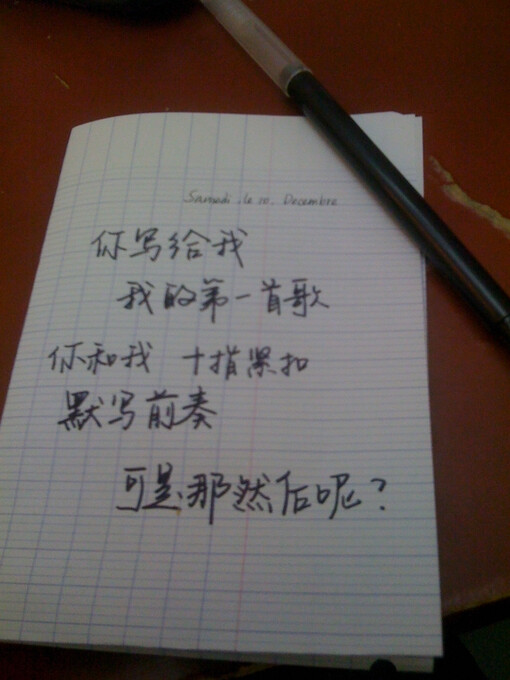 Samedi .le 10. Decembre
你写给我
我的第一首歌
你和我 十指紧扣
默写前奏
可是那然后呢？